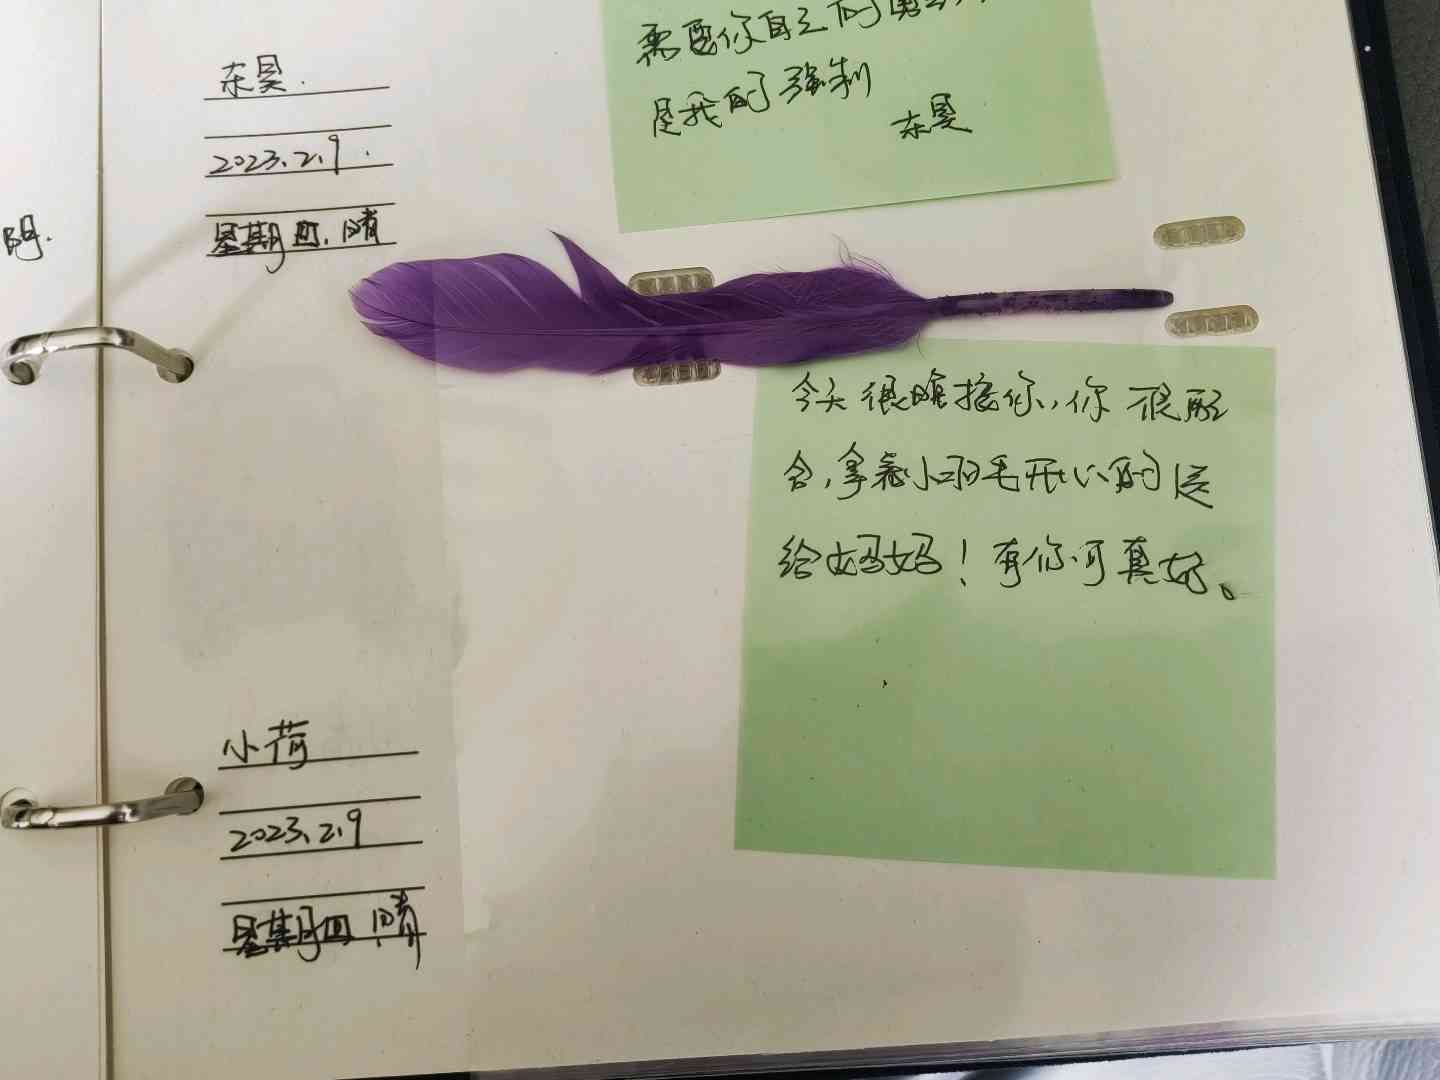 东昊.
2023.2.9.
星期四.晴
需要你自己的勇
是我的强制
东昊
今天很晚接你,你很配
合,拿着小羽毛开心的送
给妈妈!有你可真好。
小荷
2023.2.9
星期四 晴